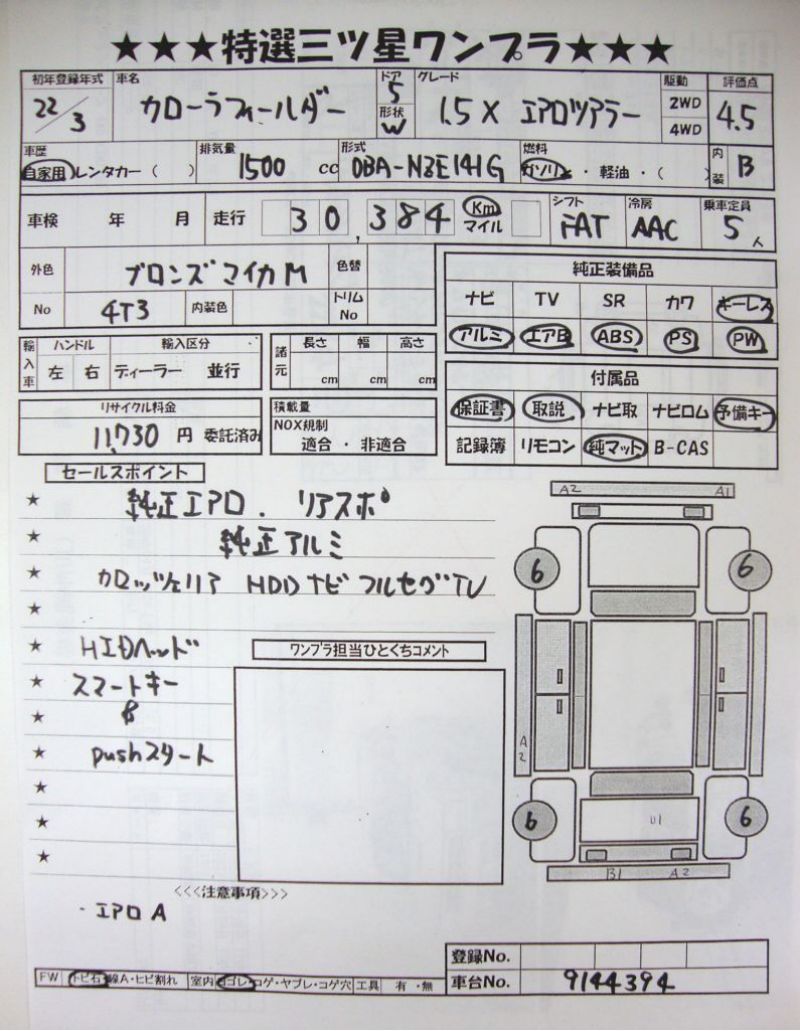 ★★★特選三ツ星ワンプラ★★★
初年登録年式 車名 ドア グレード 駆動 評価点
22/3 カローラフィールダー 5 形状 W 1.5X エアロツアラー 2WD 4WD 4.5
車歴 排気量 形式 燃料 内装
自家用 レンタカー ( ) 1500 cc DBA-NZE141G ガソリン・軽油・( ) B
車検 年 月 走行 30,384 Km マイル シフト FAT 冷房 AAC 乗車定員 5人
外色 ブロンズマイカM 色替
No 4T3 内装色 トリムNo
純正装備品
ナビ TV SR カワ キーレス
アルミ エアB ABS PS PW
輸入車 ハンドル 輸入区分 諸元 長さ 幅 高さ
左 右 ディーラー 並行 cm cm cm
付属品
保証書 取説 ナビ取 ナビロム 予備キー
記録簿 リモコン 純マット B-CAS
リサイクル料金 積載量
11,730 円 委託済み NOX規制
適合・非適合
セールスポイント
★ 純正エアロ. リアスポ
★ 純正アルミ
★ カロッツェリア HDDナビ フルセグTV
★
★ HIDヘッド
★ スマートキー
★ &
★ pushスタート
★
★
★
ワンプラ担当ひとくちコメント
A2 A1
6 6
A2
6 6
U1
B1 A2
<<<注意事項>>>
・エアロA
FW トビ石・線A・ヒビ割れ 室内 ヨゴレ・コゲ・ヤブレ・コゲ穴 工具 有・無
登録No.
車台No. 9144394